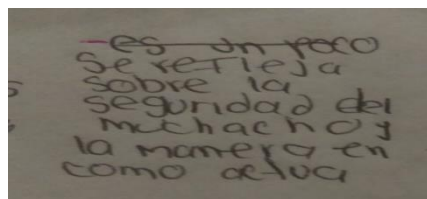 -es un poco
se refleja
sobre la
seguridad del
muchacho y
la manera en
como actua